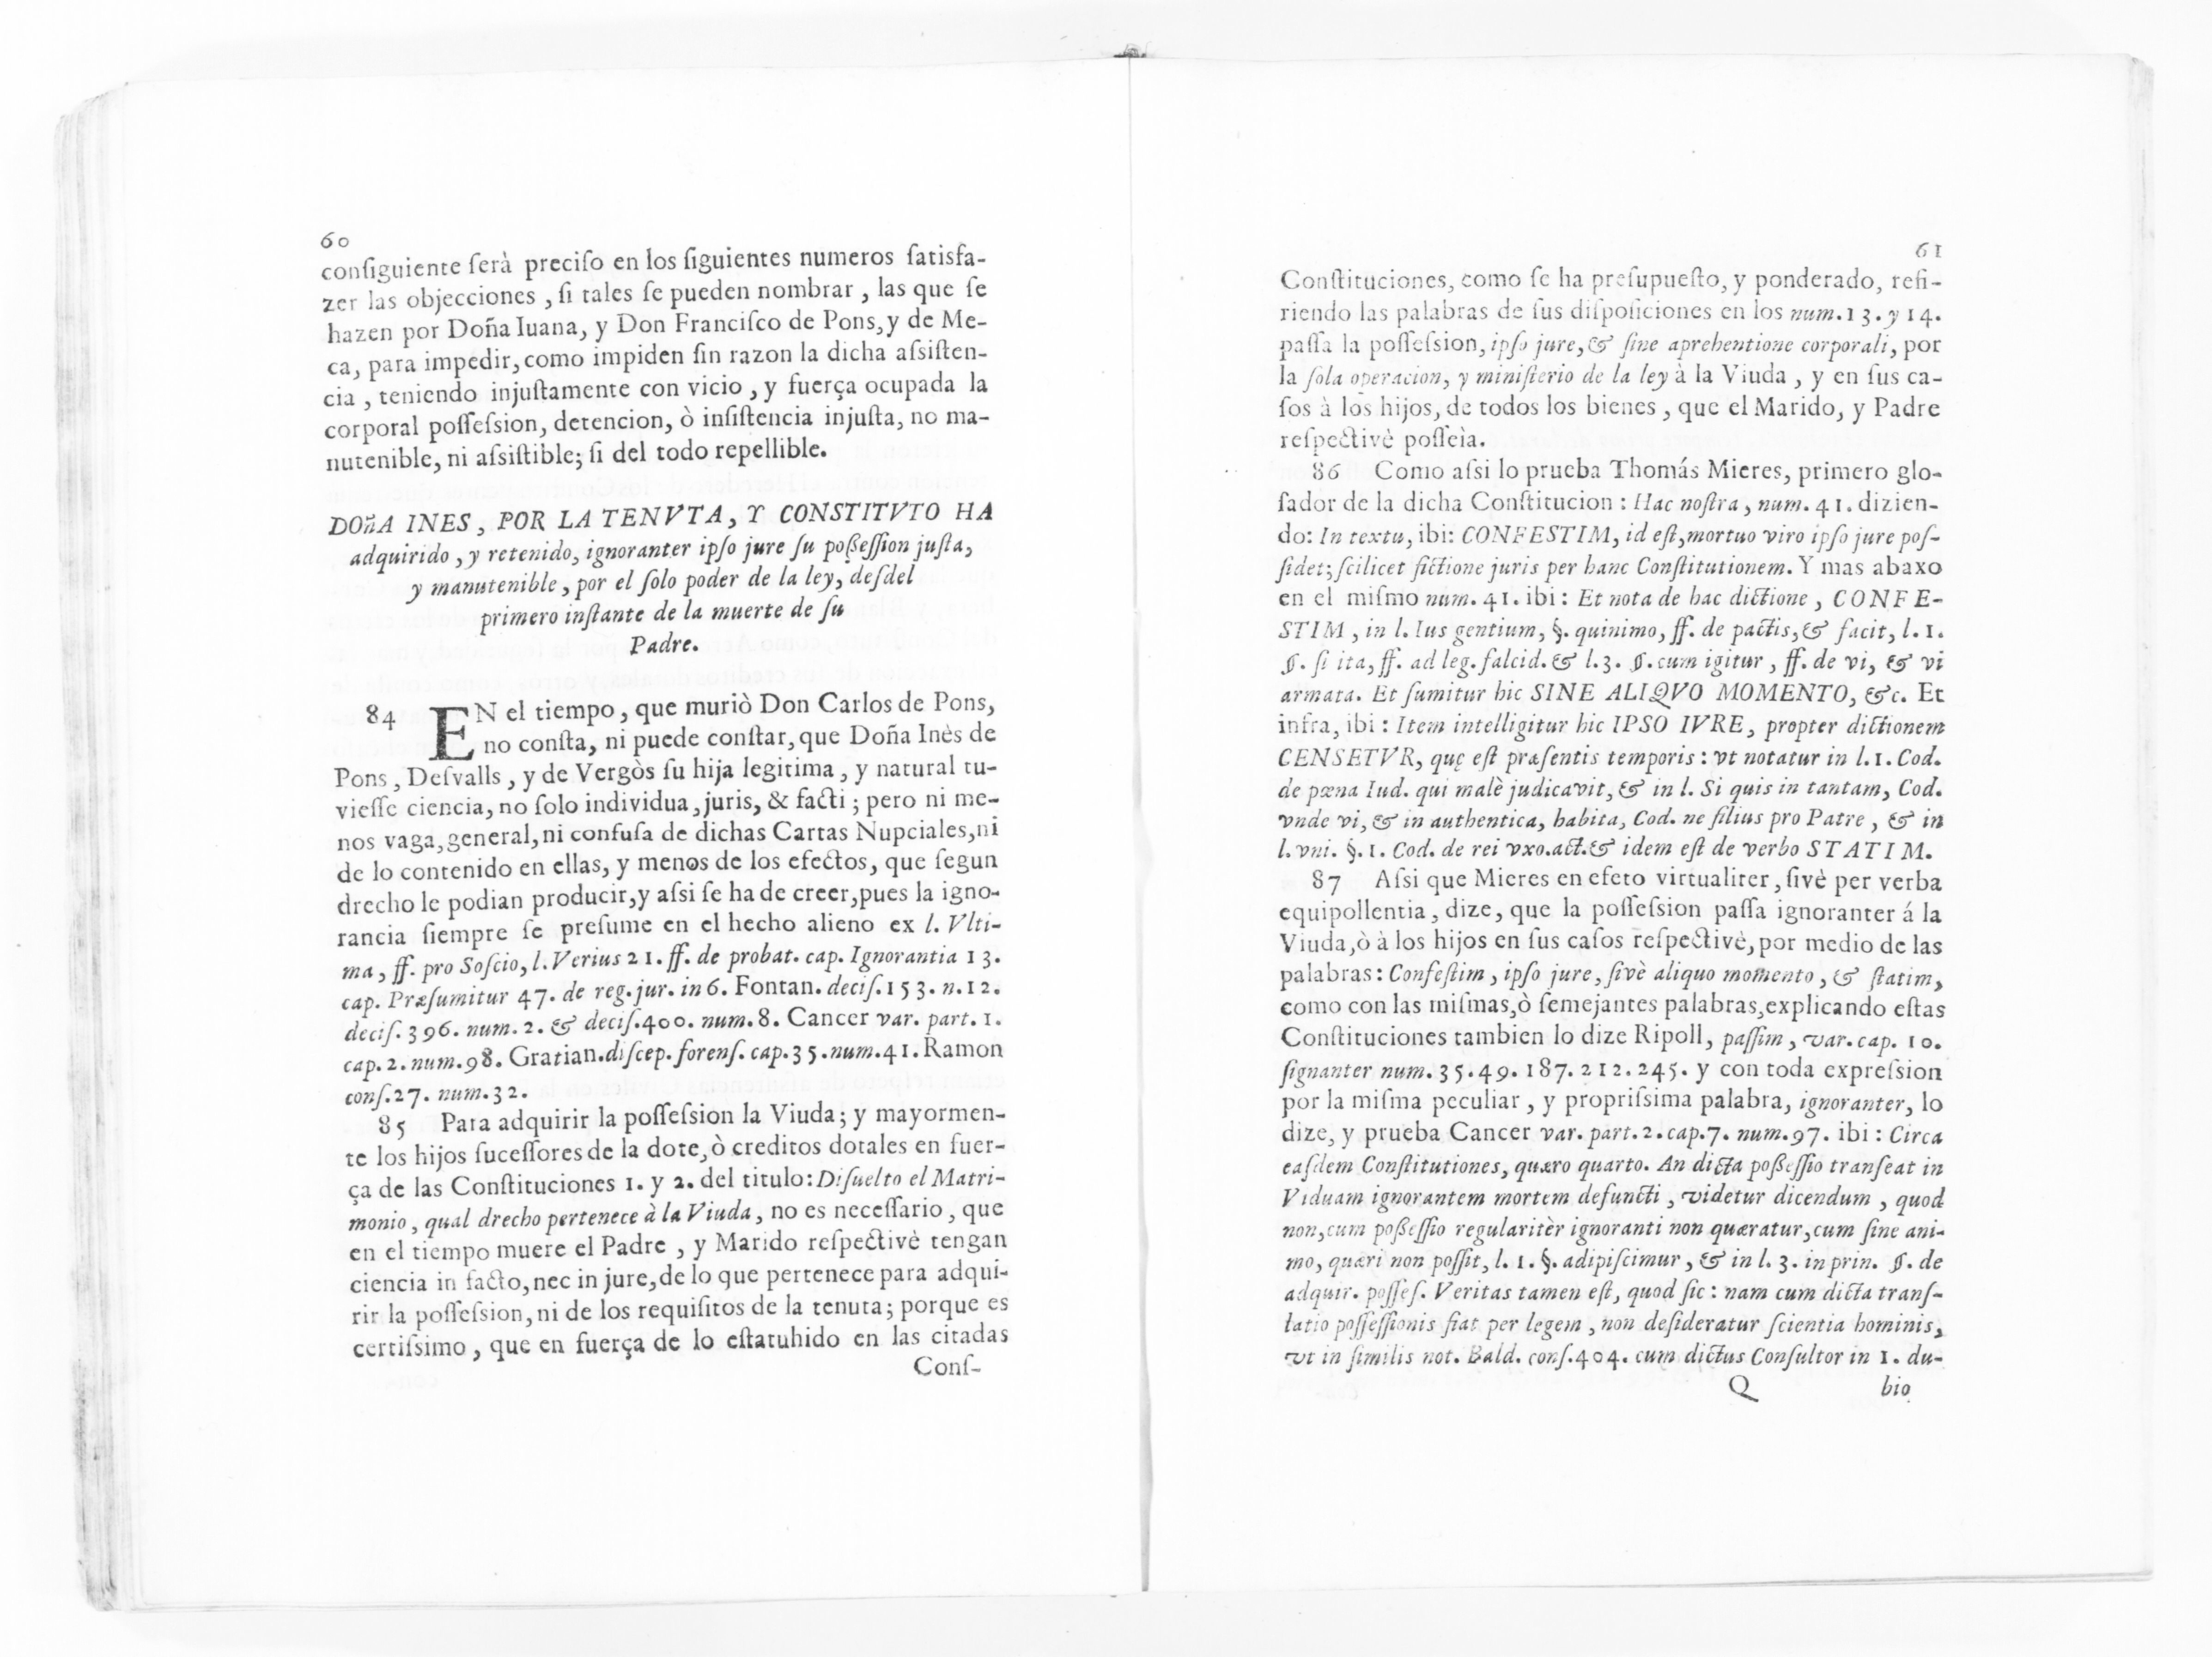 60
conſiguiente ſerà preciſo en los ſiguientes numeros ſatisfa-
zer las objecciones, ſi tales ſe pueden nombrar, las que ſe
hazen por Doña Iuana, y Don Franciſco de Pons, y de Me-
ca, para impedir, como impiden ſin razon la dicha aſsiſten-
cia, teniendo injuſtamente con vicio, y fuerça ocupada la
corporal poſſeſsion, detencion, ò inſiſtencia injuſta, no ma-
nutenible, ni aſsiſtible; ſi del todo repellible.
DOñA INES, POR LA TENVTA, Y CONSTITVTO HA
adquirido, y retenido, ignoranter ipſo jure ſu poßeſſion juſta,
y manutenible, por el ſolo poder de la ley, deſdel
primero inſtante de la muerte de ſu
Padre.
84 EN el tiempo, que muriò Don Carlos de Pons,
no conſta, ni puede conſtar, que Doña Inès de
Pons, Deſvalls, y de Vergòs ſu hija legitima, y natural tu-
vieſſe ciencia, no ſolo individua, juris, & facti; pero ni me-
nos vaga, general, ni confuſa de dichas Cartas Nupciales, ni
de lo contenido en ellas, y menos de los efectos, que ſegun
drecho le podian producir, y aſsi ſe ha de creer, pues la igno-
rancia ſiempre ſe preſume en el hecho alieno ex l. Vlti-
ma, ff. pro Soſcio, l. Verius 21. ff. de probat. cap. Ignorantia 13.
cap. Præſumitur 47. de reg. jur. in 6. Fontan. deciſ. 153. n. 12.
deciſ. 396. num. 2. & deciſ. 400. num. 8. Cancer var. part. 1.
cap. 2. num. 98. Gratian. diſcep. forenſ. cap. 35. num. 41. Ramon
conſ. 27. num. 32.
85 Para adquirir la poſſeſsion la Viuda; y mayormen-
te los hijos ſuceſſores de la dote, ò creditos dotales en fuer-
ça de las Conſtituciones 1. y 2. del titulo: Diſuelto el Matri-
monio, qual drecho pertenece à la Viuda, no es neceſſario, que
en el tiempo muere el Padre, y Marido reſpectivè tengan
ciencia in facto, nec in jure, de lo que pertenece para adqui-
rir la poſſeſsion, ni de los requiſitos de la tenuta; porque es
certiſsimo, que en fuerça de lo eſtatuhido en las citadas
Conſ-
61
Conſtituciones, como ſe ha preſupueſto, y ponderado, refi-
riendo las palabras de ſus diſpoſiciones en los num. 13. y 14.
paſſa la poſſeſsion, ipſo jure, & ſine aprehentione corporali, por
la ſola operacion, y miniſterio de la ley à la Viuda, y en ſus ca-
ſos à los hijos, de todos los bienes, que el Marido, y Padre
reſpectivè poſſeìa.
86 Como aſsi lo prueba Thomás Mieres, primero glo-
ſador de la dicha Conſtitucion: Hac noſtra, num. 41. dizien-
do: In textu, ibi: CONFESTIM, id eſt, mortuo viro ipſo jure poſ-
ſidet; ſcilicet fictione juris per hanc Conſtitutionem. Y mas abaxo
en el miſmo num. 41. ibi: Et nota de hac dictione, CONFE-
STIM, in l. Ius gentium, §. quinimo, ff. de pactis, & facit, l. 1.
§. ſi ita, ff. ad leg. falcid. & l. 3. §. cum igitur, ff. de vi, & vi
armata. Et ſumitur hic SINE ALIQVO MOMENTO, &c. Et
infra, ibi: Item intelligitur hic IPSO IVRE, propter dictionem
CENSETVR, quę eſt præſentis temporis: vt notatur in l. 1. Cod.
de pœna Iud. qui malè judicavit, & in l. Si quis in tantam, Cod.
vnde vi, & in authentica, habita, Cod. ne filius pro Patre, & in
l. vni. §. 1. Cod. de rei vxo. act. & idem eſt de verbo STATIM.
87 Aſsi que Mieres en efeto virtualiter, ſivè per verba
equipollentia, dize, que la poſſeſsion paſſa ignoranter á la
Viuda, ò à los hijos en ſus caſos reſpectivè, por medio de las
palabras: Confeſtim, ipſo jure, ſivè aliquo momento, & ſtatim,
como con las miſmas, ò ſemejantes palabras, explicando eſtas
Conſtituciones tambien lo dize Ripoll, paſſim, var. cap. 10.
ſignanter num. 35. 49. 187. 212. 245. y con toda expreſsion
por la miſma peculiar, y propriſsima palabra, ignoranter, lo
dize, y prueba Cancer var. part. 2. cap. 7. num. 97. ibi: Circa
eaſdem Conſtitutiones, quæro quarto. An dicta poßeſſio tranſeat in
Viduam ignorantem mortem defuncti, videtur dicendum, quod
non, cum poßeſſio regularitèr ignoranti non quæratur, cum ſine ani-
mo, quæri non poſſit, l. 1. §. adipiſcimur, & in l. 3. in prin. §. de
adquir. poſſeſ. Veritas tamen eſt, quod ſic: nam cum dicta tranſ-
latio poſſeſſionis fiat per legem, non deſideratur ſcientia hominis,
vt in ſimilis not. Bald. conſ. 404. cum dictus Conſultor in 1. du-
Q bio